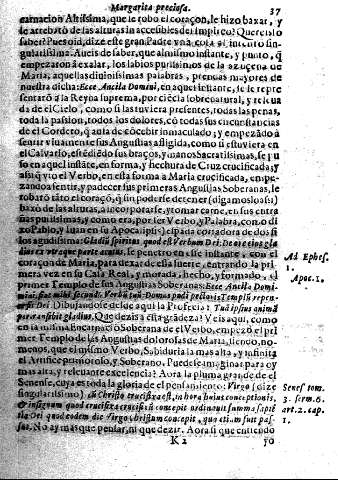 Margarita preciosa. 37
carnacion Altissima, que le robo el coraçon, le hizo baxar, y
le arrebatò de las alturas inaccessibles del Impireo? Quereislo
saber? Pues oid, dize este gran Padre vna cosa al intento sin-
gularissima. Aueis de saber, que al mismo instante, y punto, q̃
empezaron â exalar, los labios purissimos de la azuçena de
Maria, aquellas diuinissimas palabras, prendas mayores de
nuestra dicha: Ecce Ancila Domini, en aquel instante, se le repre
sentarõ â la Reyna suprema, por ciẽcia sobrenatural, y releua
da del Cielo, como si las tuviera presentes, todas las penas,
toda la passion, todos los dolores, cõ todas sus circunstancias
de el Cordero, q̃ auia de cõcebir inmaculado; y empezãdo â
sentir viuamente sus Angustias afligida, como si estuviera en
el Calvario, estẽdiẽdo sus braços, y manos Sacratissimas, se pu
so en aquel instãte, en forma, y hechura de Cruz crucificada; y
assi q̃ vio el Verbo, en esta forma a Maria crucificada, empe-
zando a sentir, y padecer sus primeras Angustias Soberanas, le
robarõ tãto el coraçõ, q̃ sin poderse detener (digamoslo assi)
baxò de las alturas, a incorporarse, y tomar carne, en sus entra
ñas purissimas, y como era, por ser Verbo, y Palabra, como di
xo Pablo, y Iuan en su Apocalipsi) espada cortadora de dos fi
los agudissima: Gladiũ spiritus, quod est Verbum Dei: De ore eius gla
dius ex vtraque parte acutus, se penetrò en este instante, con el
coraçon de Maria, para dexar de essa suerte, entrando la primera
vez en su Casa Real, y morada, hecho, y formado, el
primer Templo de sus Angustias Soberanas: Ecce Ancila Domi
ni, fiat mihi secundũ Verbũ tuũ
Dei. Dibujandose desde aqui la Profecia: Tuã ipsius animã
pertransibit gladius. Que dezis a esta grãdeza? Veis aqui, como
en la misma Encarnaciõ Soberana de el Verbo, empezò el pri
mer Templo de las Angustias dolorosas de Maria, siendo, no-
menos, que el mismo Verbo, Sabiduria la mas alta, y infinita
el Artifice primoroso, y Soberano. Puedese imaginar para oy
mas alta, y releuante excelencia? Aora la pluma grande de el
Senense, cuya es toda la gloria de el pensamiento: Virgo (dize
singularissimo) in Christo crucifixa est, in hora huius conceptionis,
& insignum quod crucifixa crucifixũ concepit ordinauit summa sapiẽ
tia Dei quod eodem die Virgo Christum concepit, quo etiam fuit pas-
sus. No ay mas que pensar, ni que dezir. Aora si que entiendo
K 2 yo
Ad Ephes.
1.
Apoc. 1.
Senes. tom.
3. serm. 6.
art. 2. cap.
1.